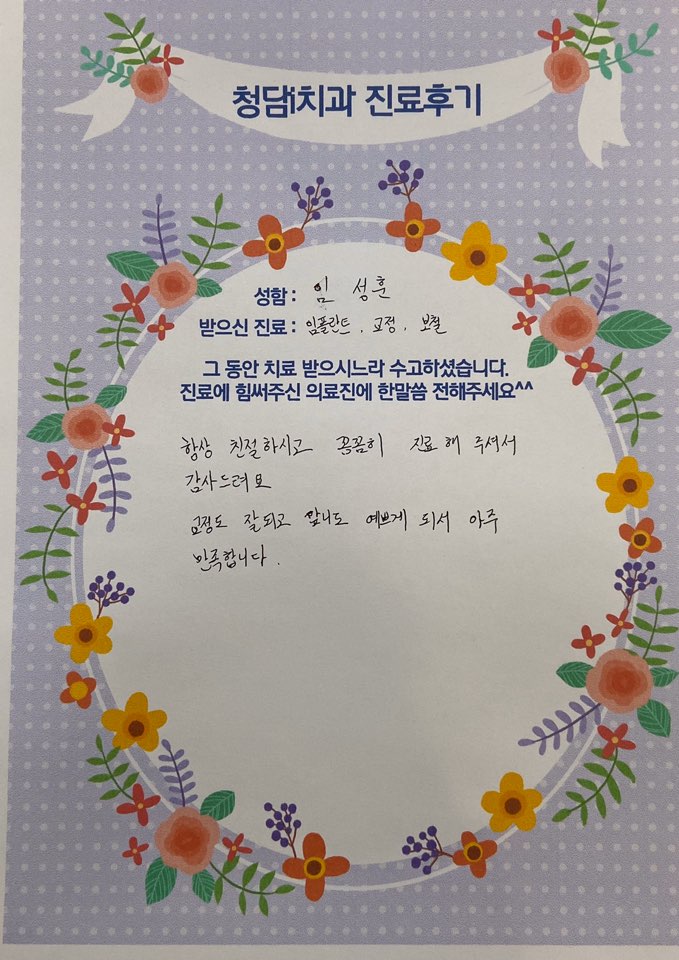 청담치과 진료후기
성함 : 임 성훈
받으신 진료 : 임플란트, 교정, 보철
그 동안 치료 받으시느라 수고하셨습니다.
진료에 힘써주신 의료진에 한말씀 전해주세요^^
항상 친절하시고 꼼꼼히 진료해 주셔서
감사드려요
교정도 잘되고 앞니도 예쁘게 되서 아주
만족합니다.